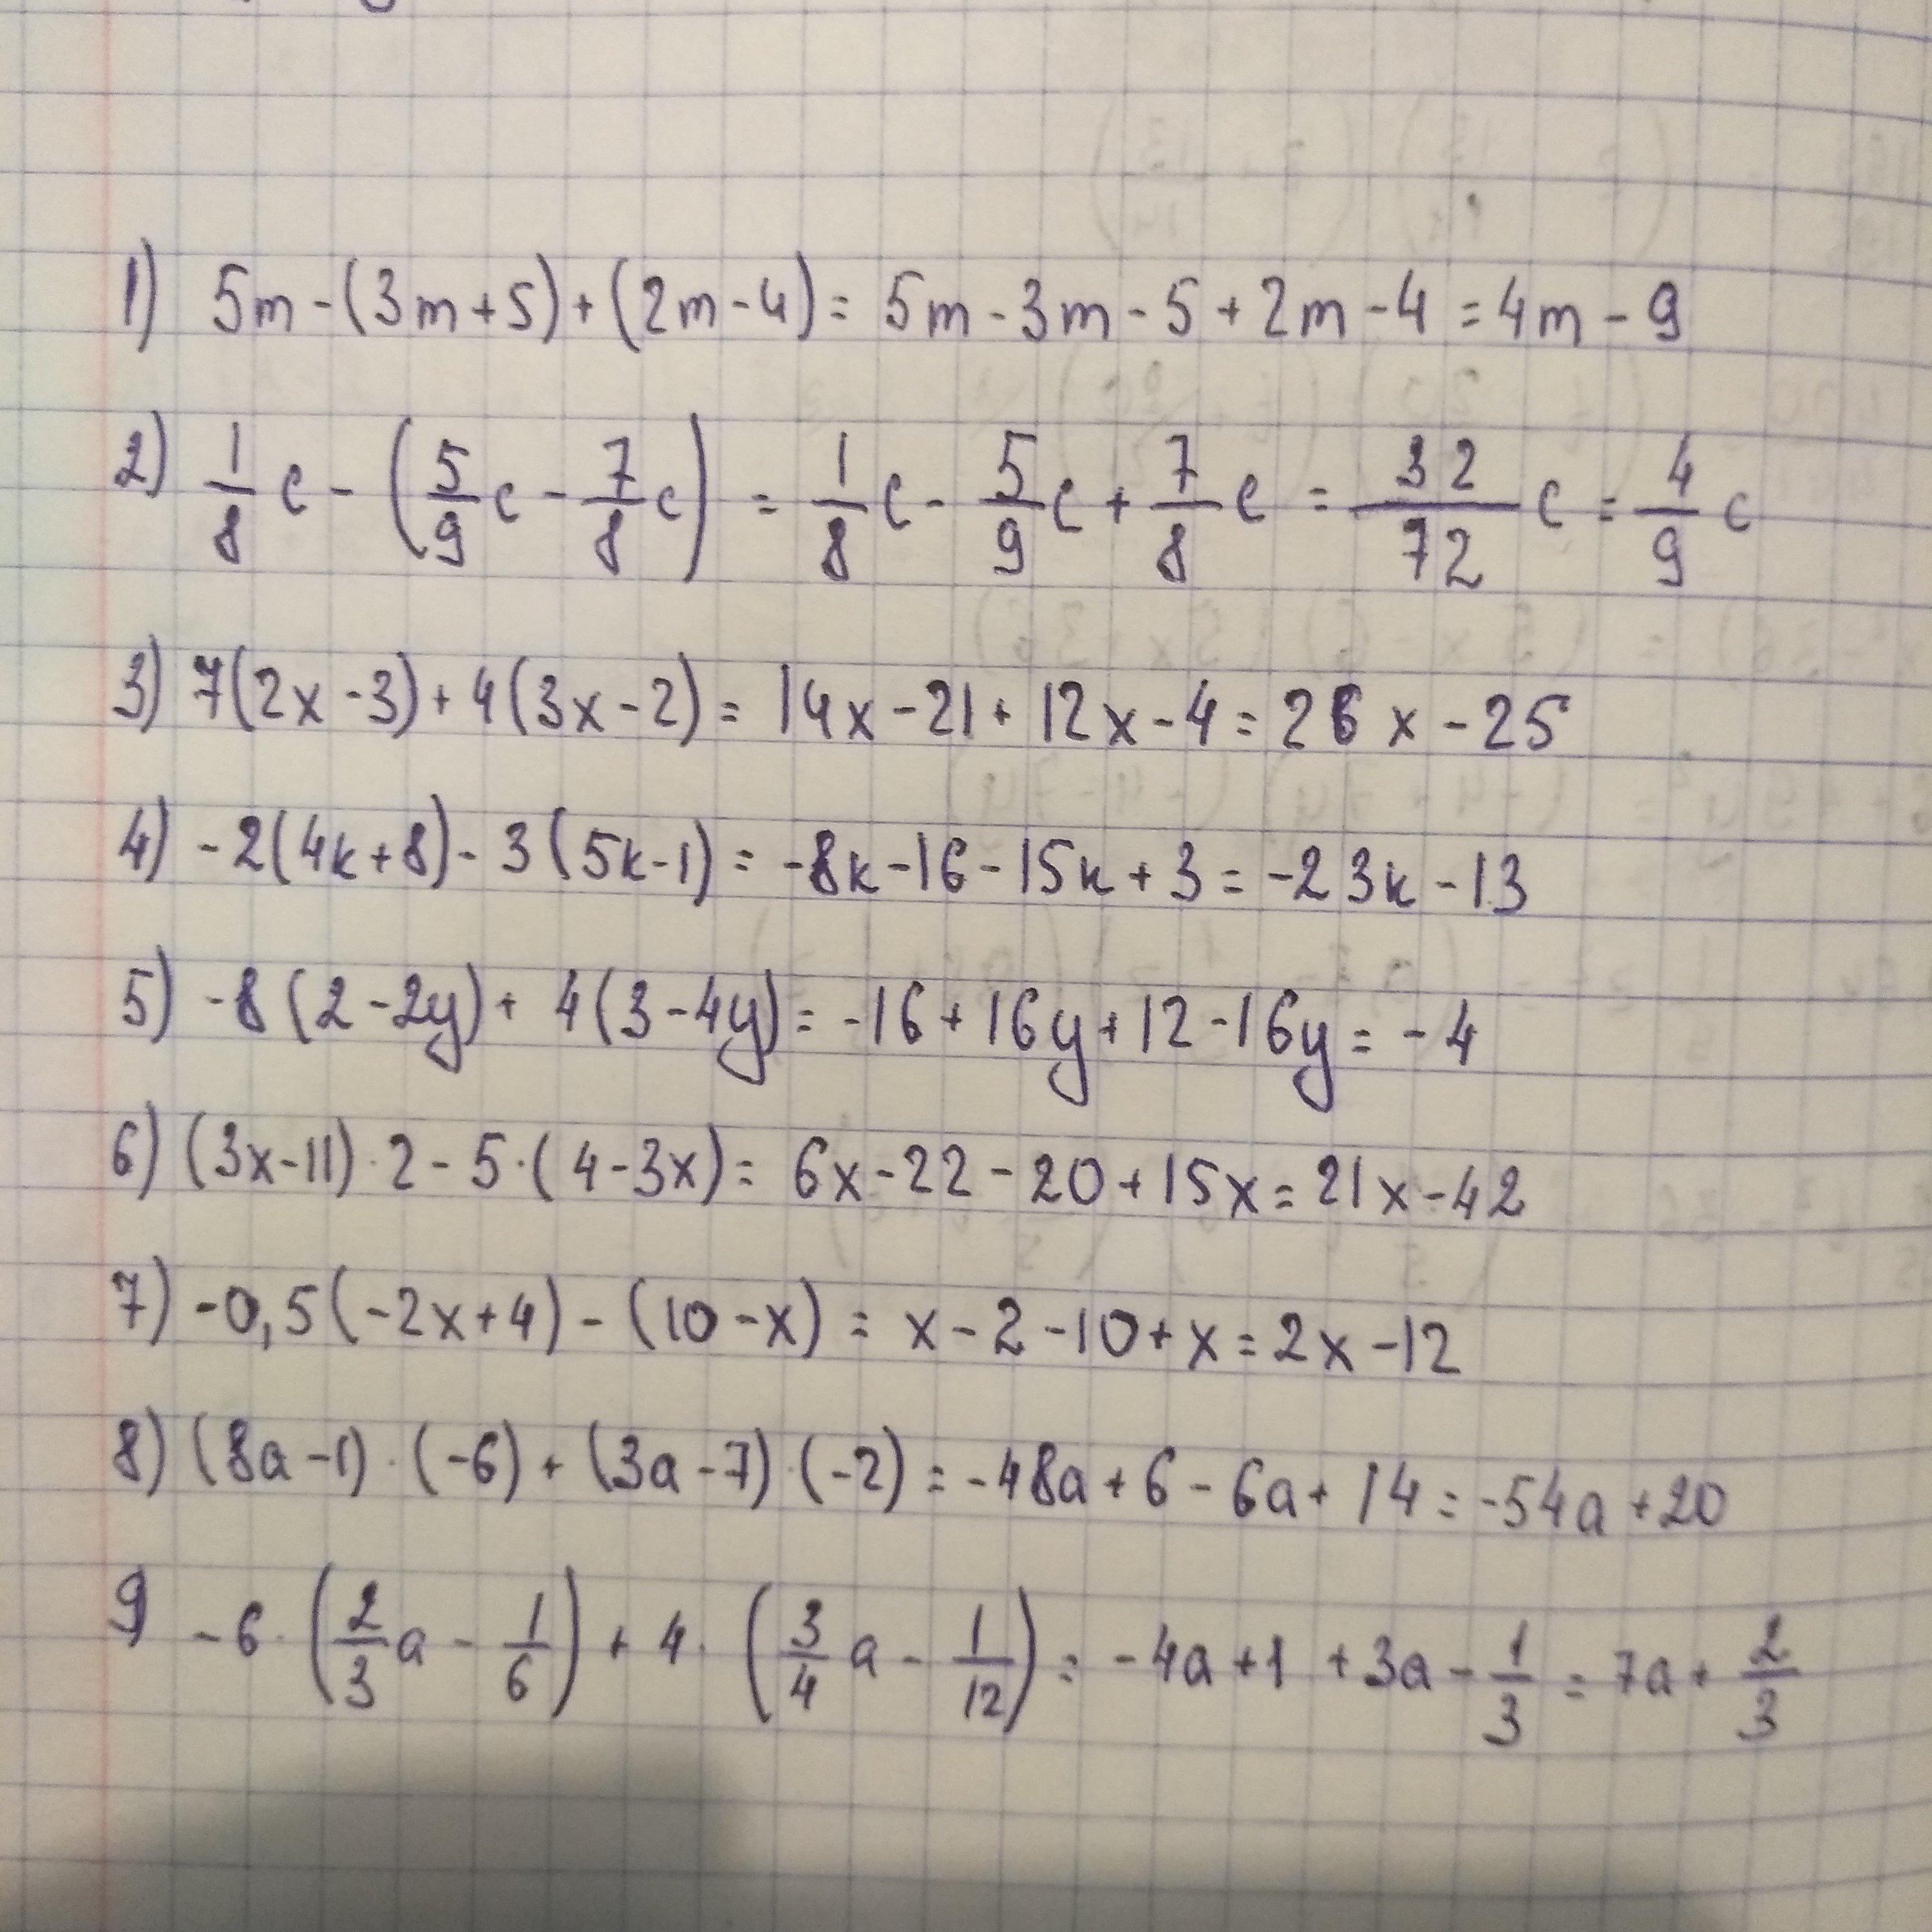 1) 5m - (3m + 5) + (2m - 4) = 5m - 3m - 5 + 2m - 4 = 4m - 9
2) 1/8 c - (5/9 c - 7/8 c) = 1/8 c - 5/9 c + 7/8 c = 32/72 c = 4/9 c
3) 7(2x - 3) + 4(3x - 2) = 14x - 21 + 12x - 4 = 26x - 25
4) -2(4k + 8) - 3(5k - 1) = -8k - 16 - 15k + 3 = -23k - 13
5) -8(2 - 2y) + 4(3 - 4y) = -16 + 16y + 12 - 16y = -4
6) (3x - 11) · 2 - 5 · (4 - 3x) = 6x - 22 - 20 + 15x = 21x - 42
7) -0,5(-2x + 4) - (10 - x) = x - 2 - 10 + x = 2x - 12
8) (8a - 1) · (-6) + (3a - 7) · (-2) = -48a + 6 - 6a + 14 = -54a + 20
9) -6 · (2/3 a - 1/6) + 4 · (3/4 a - 1/12) = -4a + 1 + 3a - 1/3 = 7a + 2/3